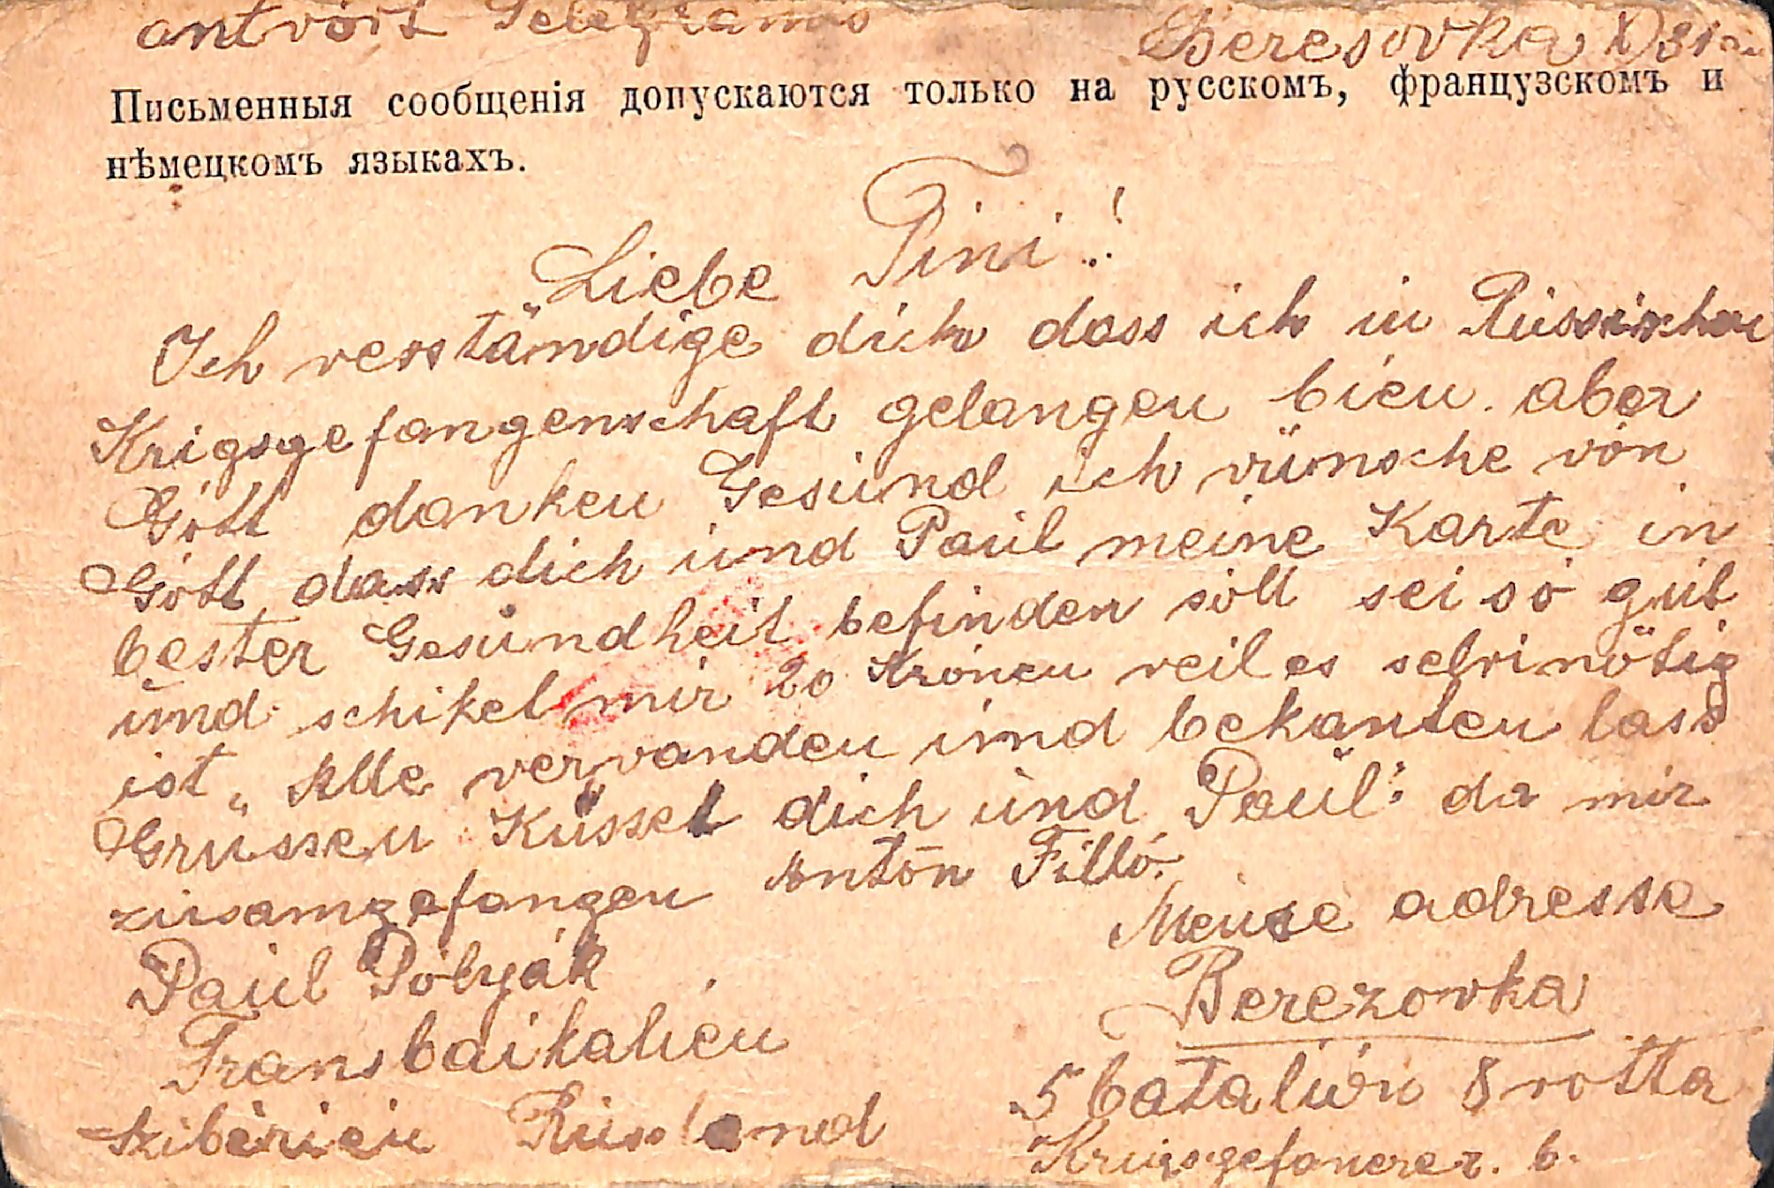 antvort Telegramis
Beresovka X 31
Письменныя сообщенія допускаются только на русскомъ, французскомъ и
нѣмецкомъ языкахъ.
Liebe Tini!
Ich verständige dich dass ich in Russischen
Krigsgefangenschaft gelangen bien. aber
Gott danken Gesund ich vünsche von
Gott dass dich und Paul meine Karte in
bester Gesundheit befinden soll sei so gut
und schikel mir 20 Kronen veil es selvi nötig
ist„ Alle vervanden und bekanten lass
Grüssen Küssel dich und Paul: da mir
zusamgefangen Anton Filló.
Paul Polyák
Transbaikalien
Szibèrien Russland
Meine adresse
Berezovka
5 batalión 8 rotta
Kriegsgefanerer. b.